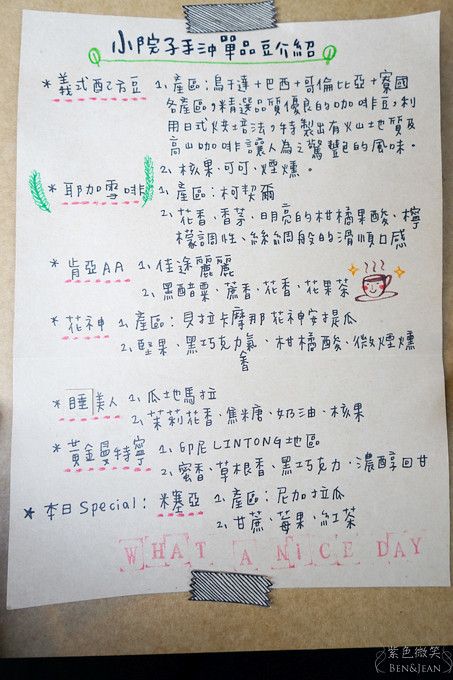 小院子手沖單品豆介紹
* 義式配方豆 1、產區:烏干達+巴西+哥倫比亞+寮國
各產區,精選品質優良的咖啡豆,利
用日式烘培法,特製出有火山地質及
高山咖啡讓人為之驚豔的風味。
2、核果、可可、煙燻。
* 耶加雪啡 1、產區:柯契爾
2、花香、香茅、明亮的柑橘果酸、檸
檬調性、絲綢般的滑順口感
* 肯亞AA 1、佳途麗麗
2、黑醋栗、蔗香、花香、花果茶
* 花神 1、產區:貝拉卡摩那花神安提瓜
2、堅果、黑巧克力氣、柑橘酸、微煙燻
香
* 睡美人 1、瓜地馬拉
2、茉莉花香、焦糖、奶油、核果
* 黃金曼特寧 1、印尼LINTONG地區
2、蜜香、草根香、黑巧克力、濃醇回甘
* 本日Special: 米塞亞 1、產區:尼加拉瓜
2、甘蔗、莓果、紅茶
WHAT A NICE DAY
紫色微笑
BEN&JEAN